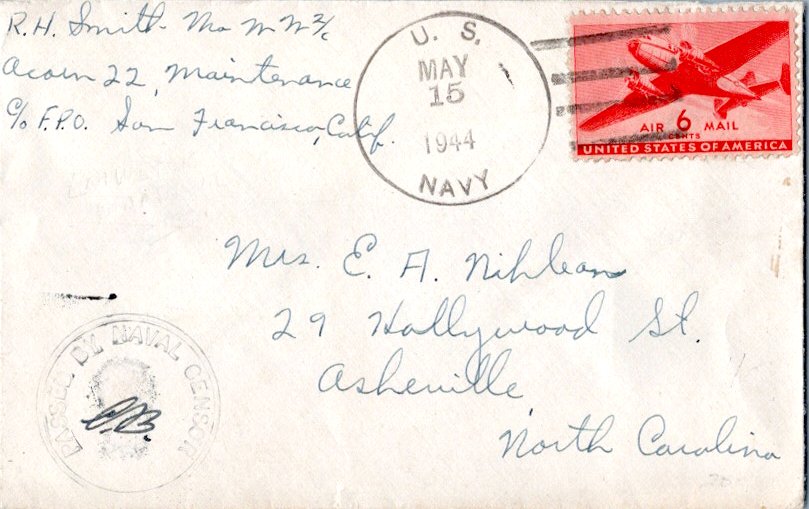 R.H. Smith Mo M M 2/c
Acorn 22, Maintenance
C/o F.P.O. San Francisco, Calif.
U. S.
MAY
15
1944
NAVY
AIR 6 MAIL
CENTS
UNITED STATES OF AMERICA
Mrs. E. A. Nihlean
29 Hollywood St.
Asheville,
North Carolina
PASSED BY NAVAL CENSOR